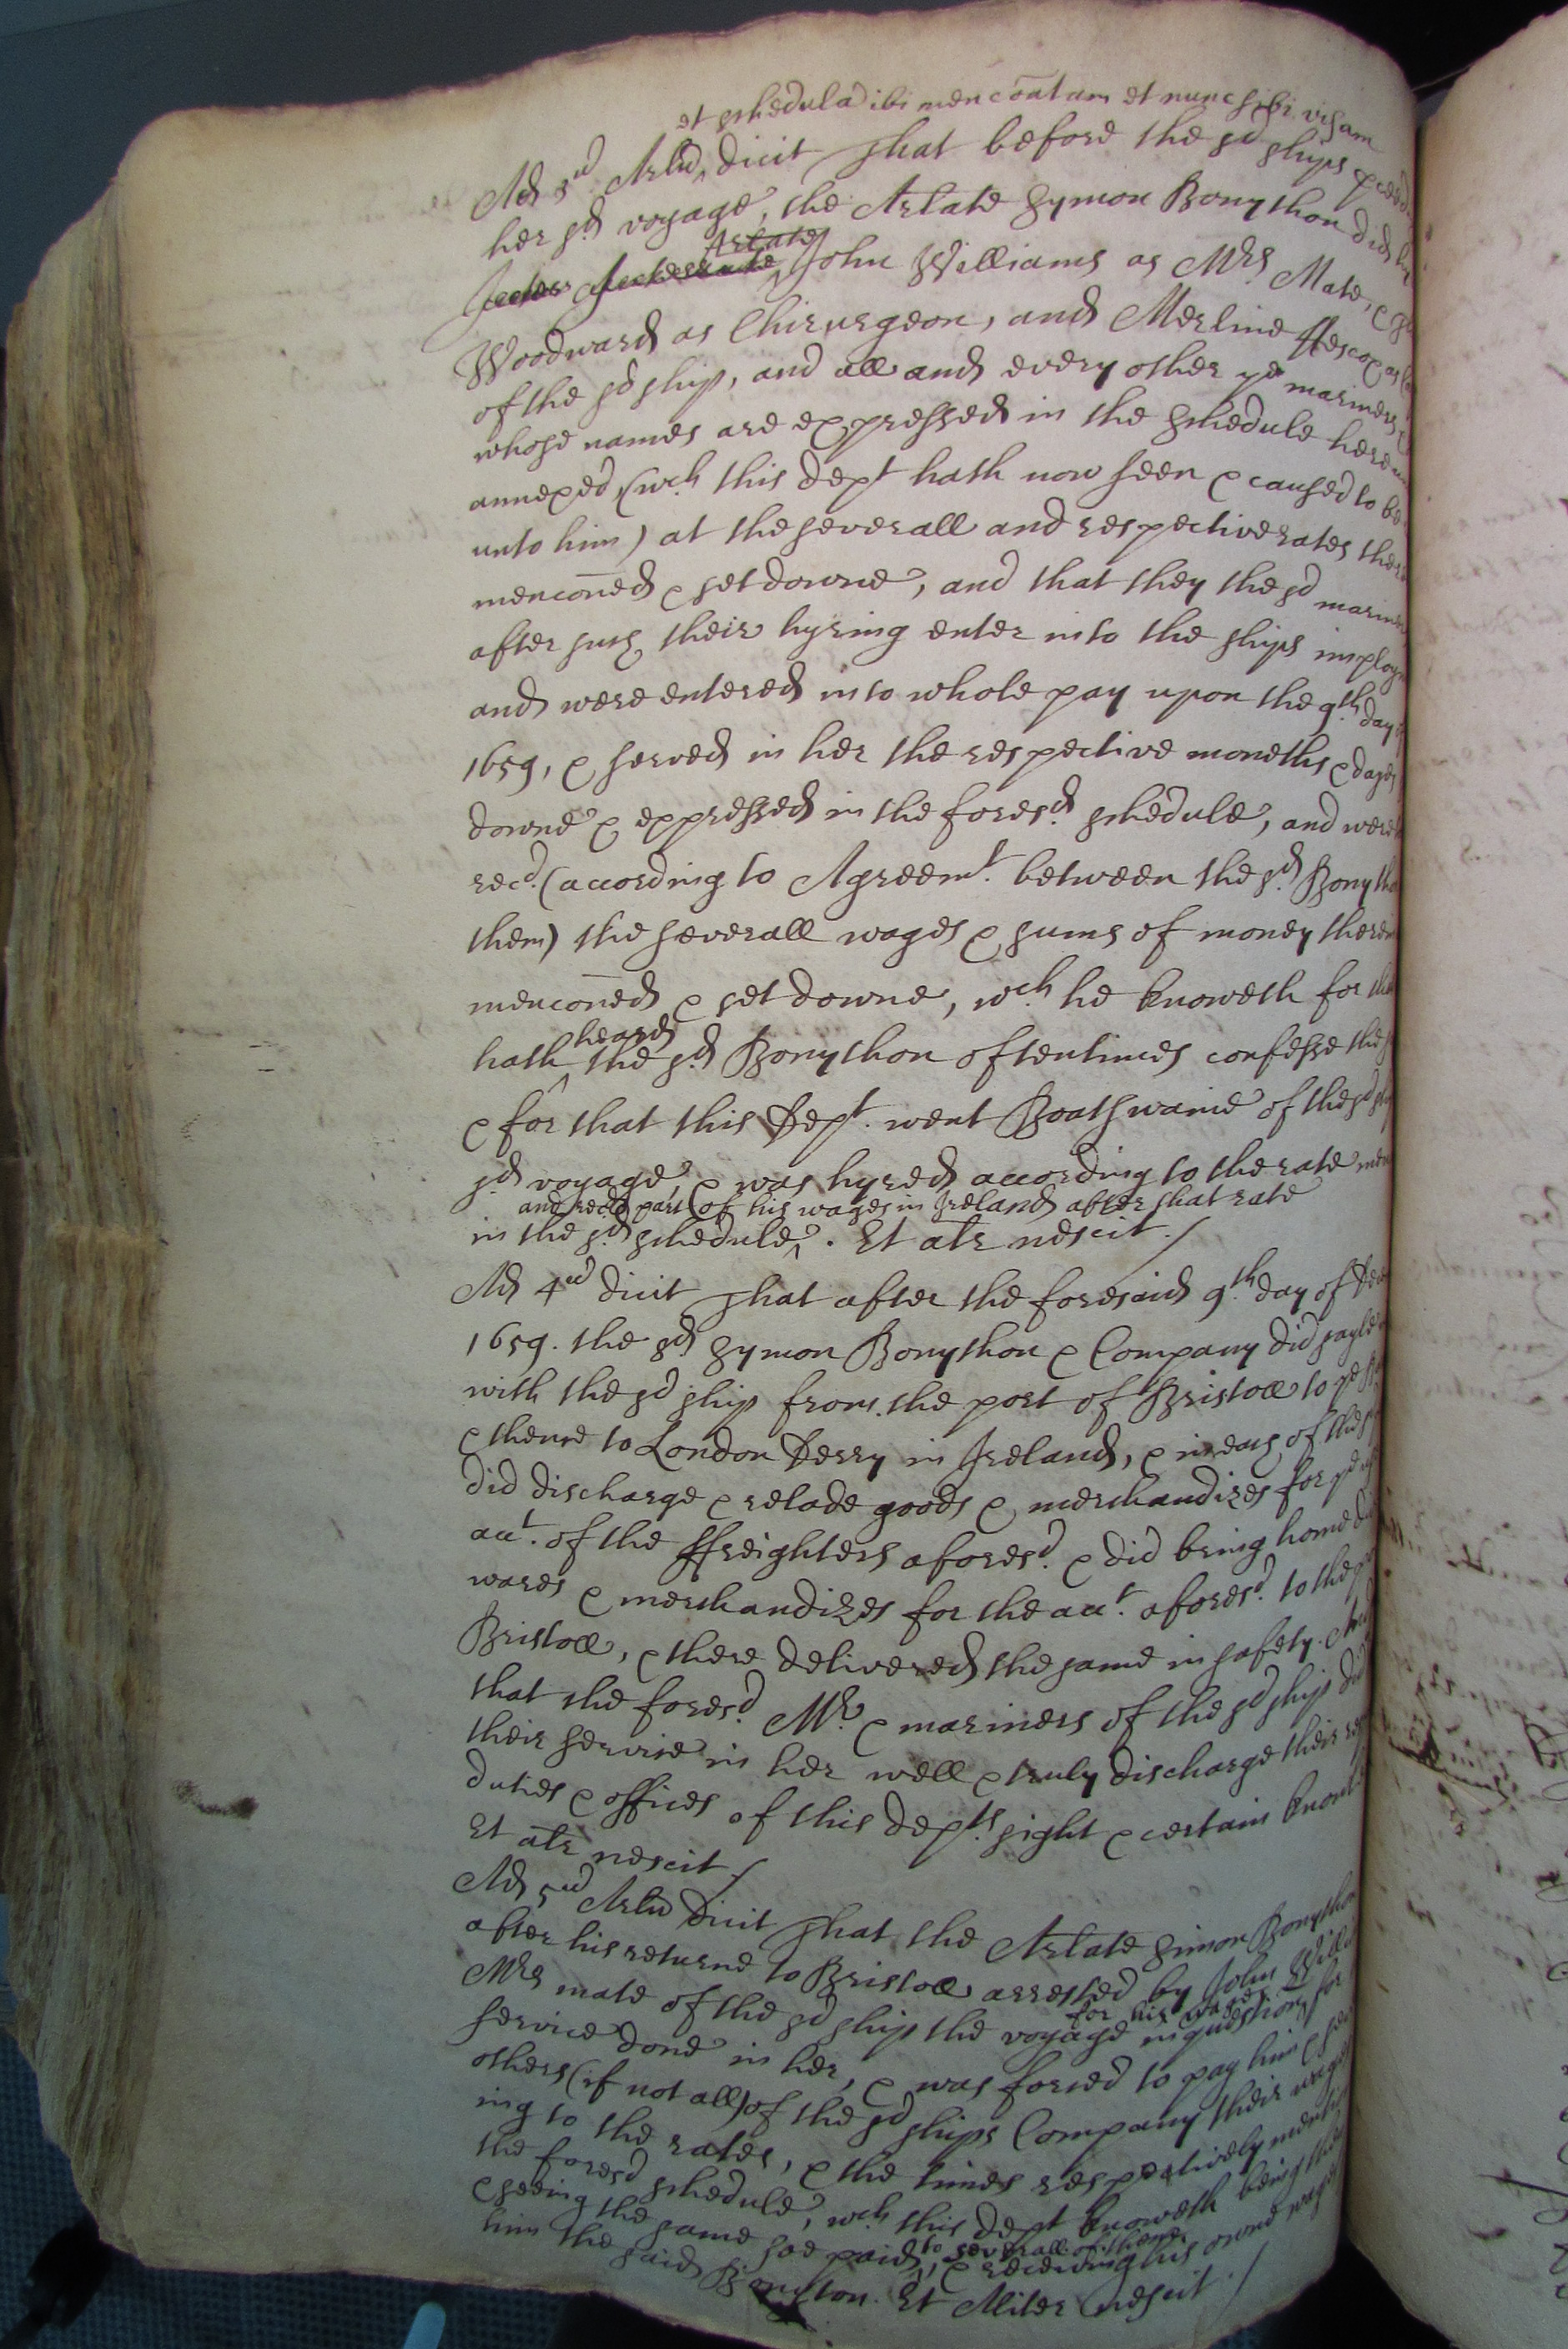 et schedula ibi mencōatam et nunc sibi visam
Ad 3ud Arlu dicit That before the sd ships
her sd voyage, the Arlate Symon Bonython did
Arlate
John Williams as Mrs Mate, &
Woodward as Chirurgeon, and Merline Hescox as
of the sd ship, and all and every other ye mariners
whose names are expressed in the schedule
annexed, (wch this dept hath now seen & caused to be
unto him) at the severall and respective rates
mencōned & set downe, and that they the sd
after such their hyring enter into the ships
and were entered into whole pay upon the 9th day
1659, & served in her the respective moneths & dayes
downe & expressed in the foresd. schedule, and
recd. (according to Agreemt. between the sd.
them) the severall wages & sums of money
mencōned & set downe, wch he knoweth for
heard
hath the sd Bonython oftentimes confesse
& for that this Dept. went Boatswaine of the sd
sd voyage & was hyred according to the rate
and recd part of his wages in Ireland after that rate
in the sd schedule. Et alr nescit /
Ad 4ud dicit That after the foresaid 9th. day of
1659. the sd Symon Bonython & Company did sayle
with the sd ship from the port of Bristoll to ye
& thence to London Derry in Ireland, & in each of
did discharge & relade goods & merchandizes for ye
acct. of the ffreighters aforesd. & did bring home
wares & merchandizes for the acct. aforesd. to the
Bristoll, & there delivered the same in safety. And
that the foresd. Mr. & mariners of the sd ship
their service in her well & truly discharge their
duties & offices of this depts. sight & certain
Et alr nescit /
Ad 5ud Arlu dicit That the Arlate Simon Bonython
after his returne to Bristoll arrested by John
Mrs mate of the sd ship the voyage in question, for
for his wages
service done in her, & was forced to pay him &
others (if not all) of the sd ships Company their
ing to the rates, & the times respectively
the foresd schedule, wch this dept knoweth being
& seeing the same soe paid, & receiving his owne wages
to severall of them
him the said Bonython. Et Aliter nescit /